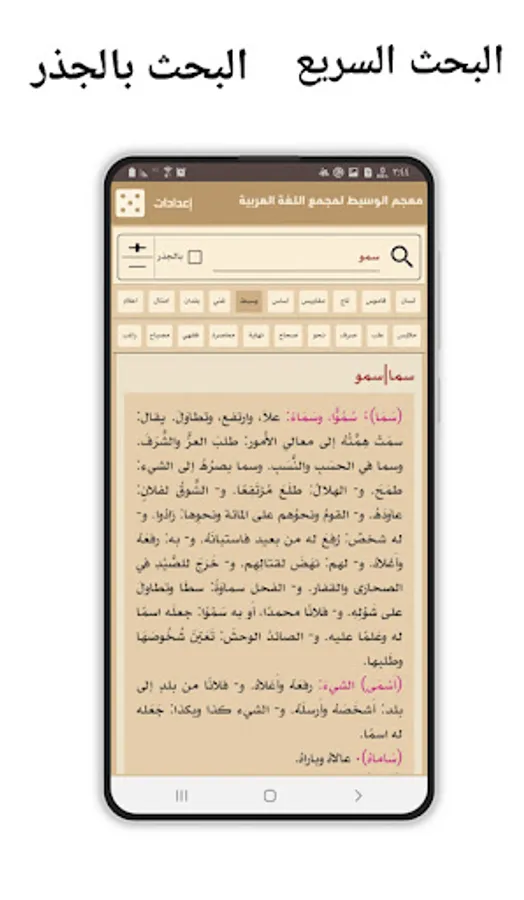 البحث السريع
البحث بالجذر
٢:٤٤
معجم الوسيط لمجمع اللغة العربية
إعدادات
سمو
بالجذر
لسان قاموس تاج مقاييس أساس وسيط غني بلدان امثال اعلام
ملابس طب صرف نحو صحاح نهاية معاصرة فقهي مصباح راغب
سما|سمو
(سَمَا): سُمُوًّا، وسَمَاءً: علاَ، وارتفع، وتطاوَلَ. يقال:
سمَتْ هِمَّتُهُ إلى معالي الأُمور: طلبَ العزَّ والشَّرَفَ.
وسما في الحسَبِ والنَّسَبِ. وسما بصرُهُ إلى الشيءِ:
طمَحَ. و- الهلالُ: طلَعَ مُرْتفِعًا. و- الشَّوقُ لفلانٍ:
عاوَدَهُ. و- القومُ ونحوُهم على المائة ونحوِها: زادُوا. و-
له شخصٌ: رُفِعَ له من بعيد فاستبانَه. و- به: رفعَهُ
وأَعْلاهُ. و- لهم: نهَضَ لقتالِهم. و- خَرَجَ للصَّيْدِ في
الصحارَى والقفار. و- الفحل سماوَةً: سطَا وتطاولَ
على شَوْلِهِ. و- فلانًا محمدًا، أو به سَمْوًا: جعلَه اسمًا
له وعَلَمًا عليه. و- الصائدُ الوحشَ: تَعَيَّنَ شُخُوصَهَا
وطَلبها.
(أَسْمَى) الشيءَ: رفعَهُ وأَعْلاهُ. و- فلانًا من بلدٍ إلى
بلد: أَشخَصَهُ وأَرسلَه. و- الشيء كذا وبكذا: جَعَله
له اسمًا.
(سَاماهُ)٠ عالاهُ وباراهُ.